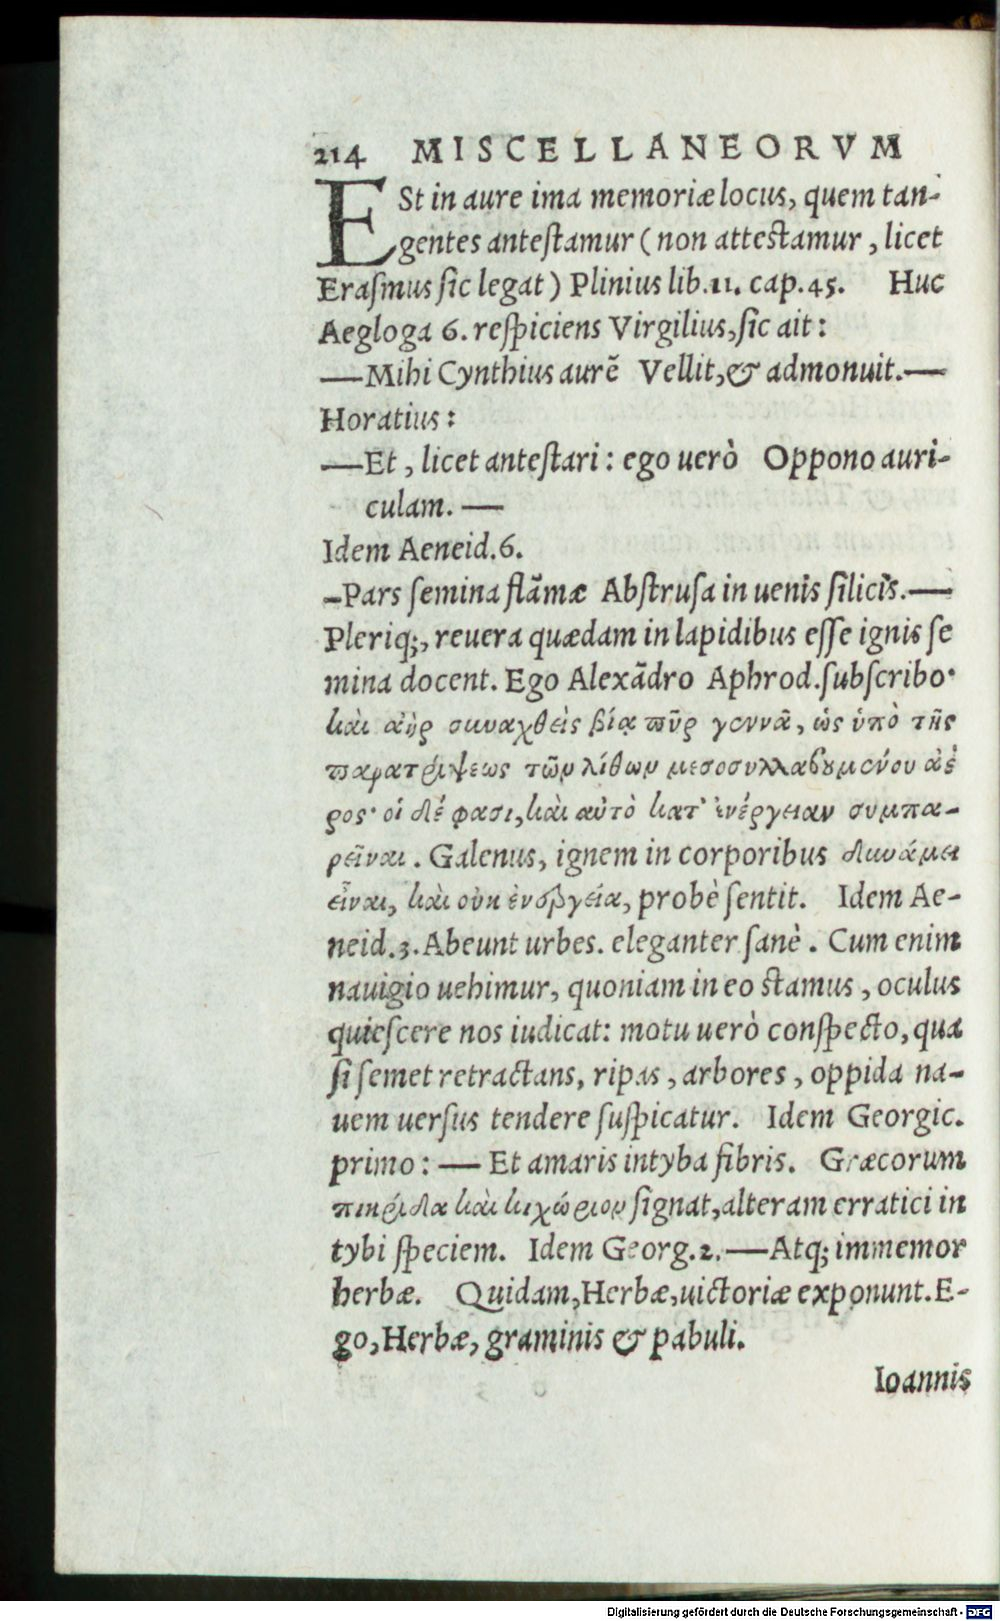 214 MISCELLANEORVM
ESt in aure ima memoriæ locus, quem tan-
gentes antestamur (non attestamur, licet
Erasmus sic legat) Plinius lib.11. cap.45. Huc
Aegloga 6. respiciens Virgilius, sic ait:
—Mihi Cynthius aurẽ Vellit, & admonuit.—
Horatius:
—Et, licet antestari: ego uerò Oppono auri-
culam. —
Idem Aeneid.6.
-Pars semina flãmæ Abstrusa in uenis silicis.—
Pleriq;, reuera quædam in lapidibus esse ignis se
mina docent. Ego Alexãdro Aphrod. subscribo·
καὶ ἀὴρ συναχθεὶς βίᾳ πῦρ γεννᾶ, ὡς ὑπὸ τῆς
παρατρίψεως τῶν λίθων μεσοσυλλαβουμένου ἀέ
ρος· οἱ δέ φασι, καὶ αὐτὸ κατ' ἐνέργειαν συμπα-
ρεῖναι. Galenus, ignem in corporibus δυνάμει
εἶναι, καὶ οὐκ ἐνεργείᾳ, probè sentit. Idem Ae-
neid.3. Abeunt urbes. eleganter sanè. Cum enim
nauigio uehimur, quoniam in eo stamus, oculus
quiescere nos iudicat: motu uerò conspecto, qua
si semet retractans, ripas, arbores, oppida na-
uem uersus tendere suspicatur. Idem Georgic.
primo: — Et amaris intyba fibris. Græcorum
πικρίδα καὶ κιχώριον signat, alteram erratici in
tybi speciem. Idem Georg.2.—Atq; immemor
herbæ. Quidam, Herbæ, uictoriæ exponunt. E-
go, Herbæ, graminis & pabuli.
Ioannis
Digitalisierung gefördert durch die Deutsche Forschungsgemeinschaft - DFG